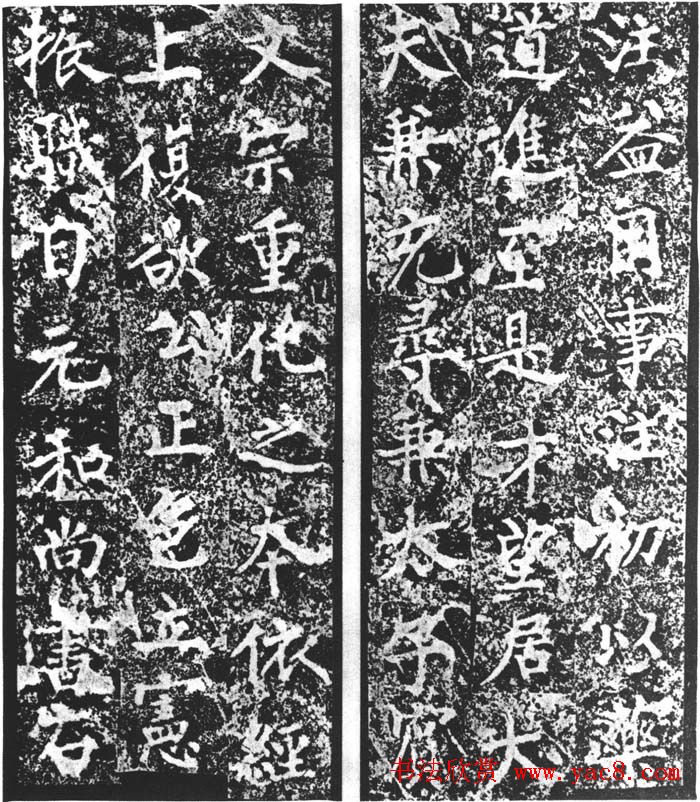 注益用事注初以
道進至是才望居大
夫兼充尋兼太子賓
文宗重化之本依經
上復欲公正色立憲
振職自元和尚書右
书法欣赏 www.yac8.com